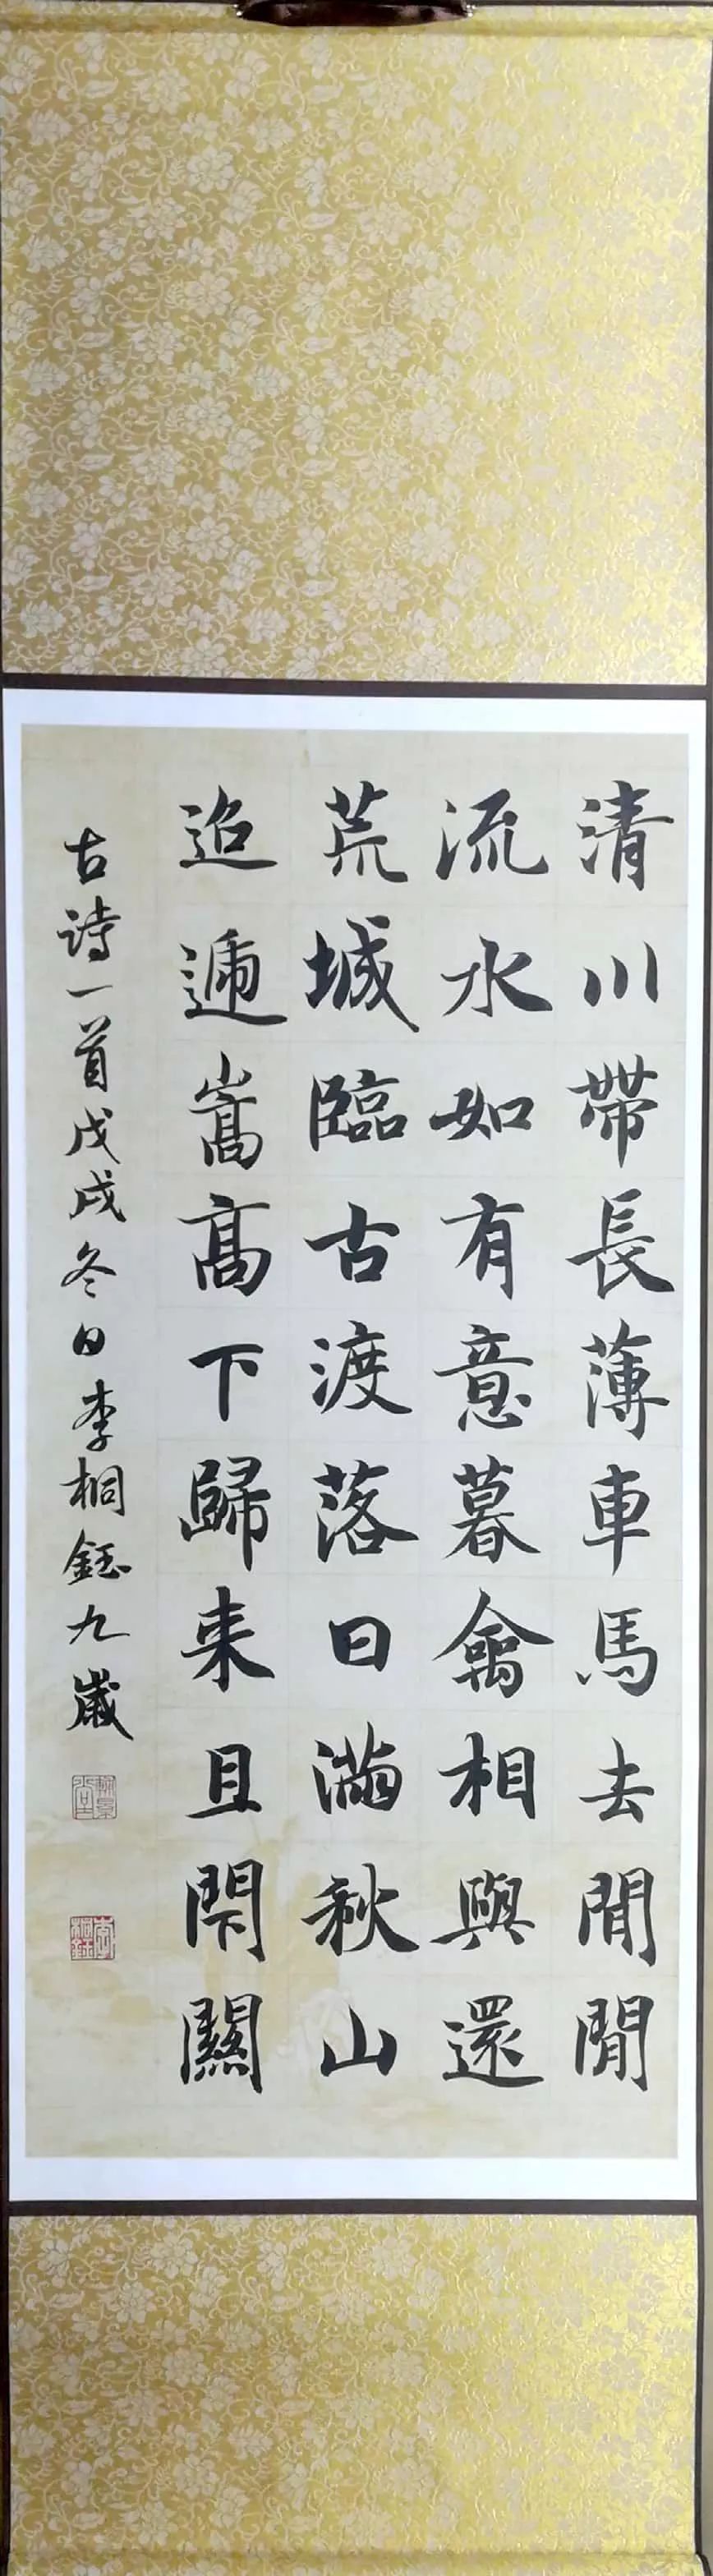 清川帶長薄車馬去閒閒
流水如有意暮禽相與還
荒城臨古渡落日滿秋山
迢遞嵩高下歸來且閉關
古詩一首戊戌冬日李桐鈺九歲